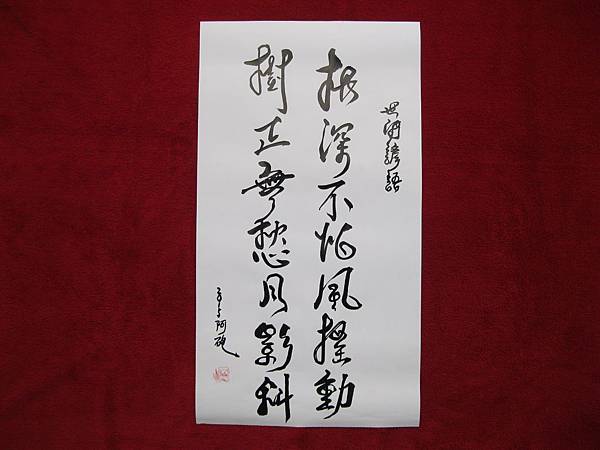 世間諺語
根深不怕風搖動
樹正無愁月影斜
阿硯